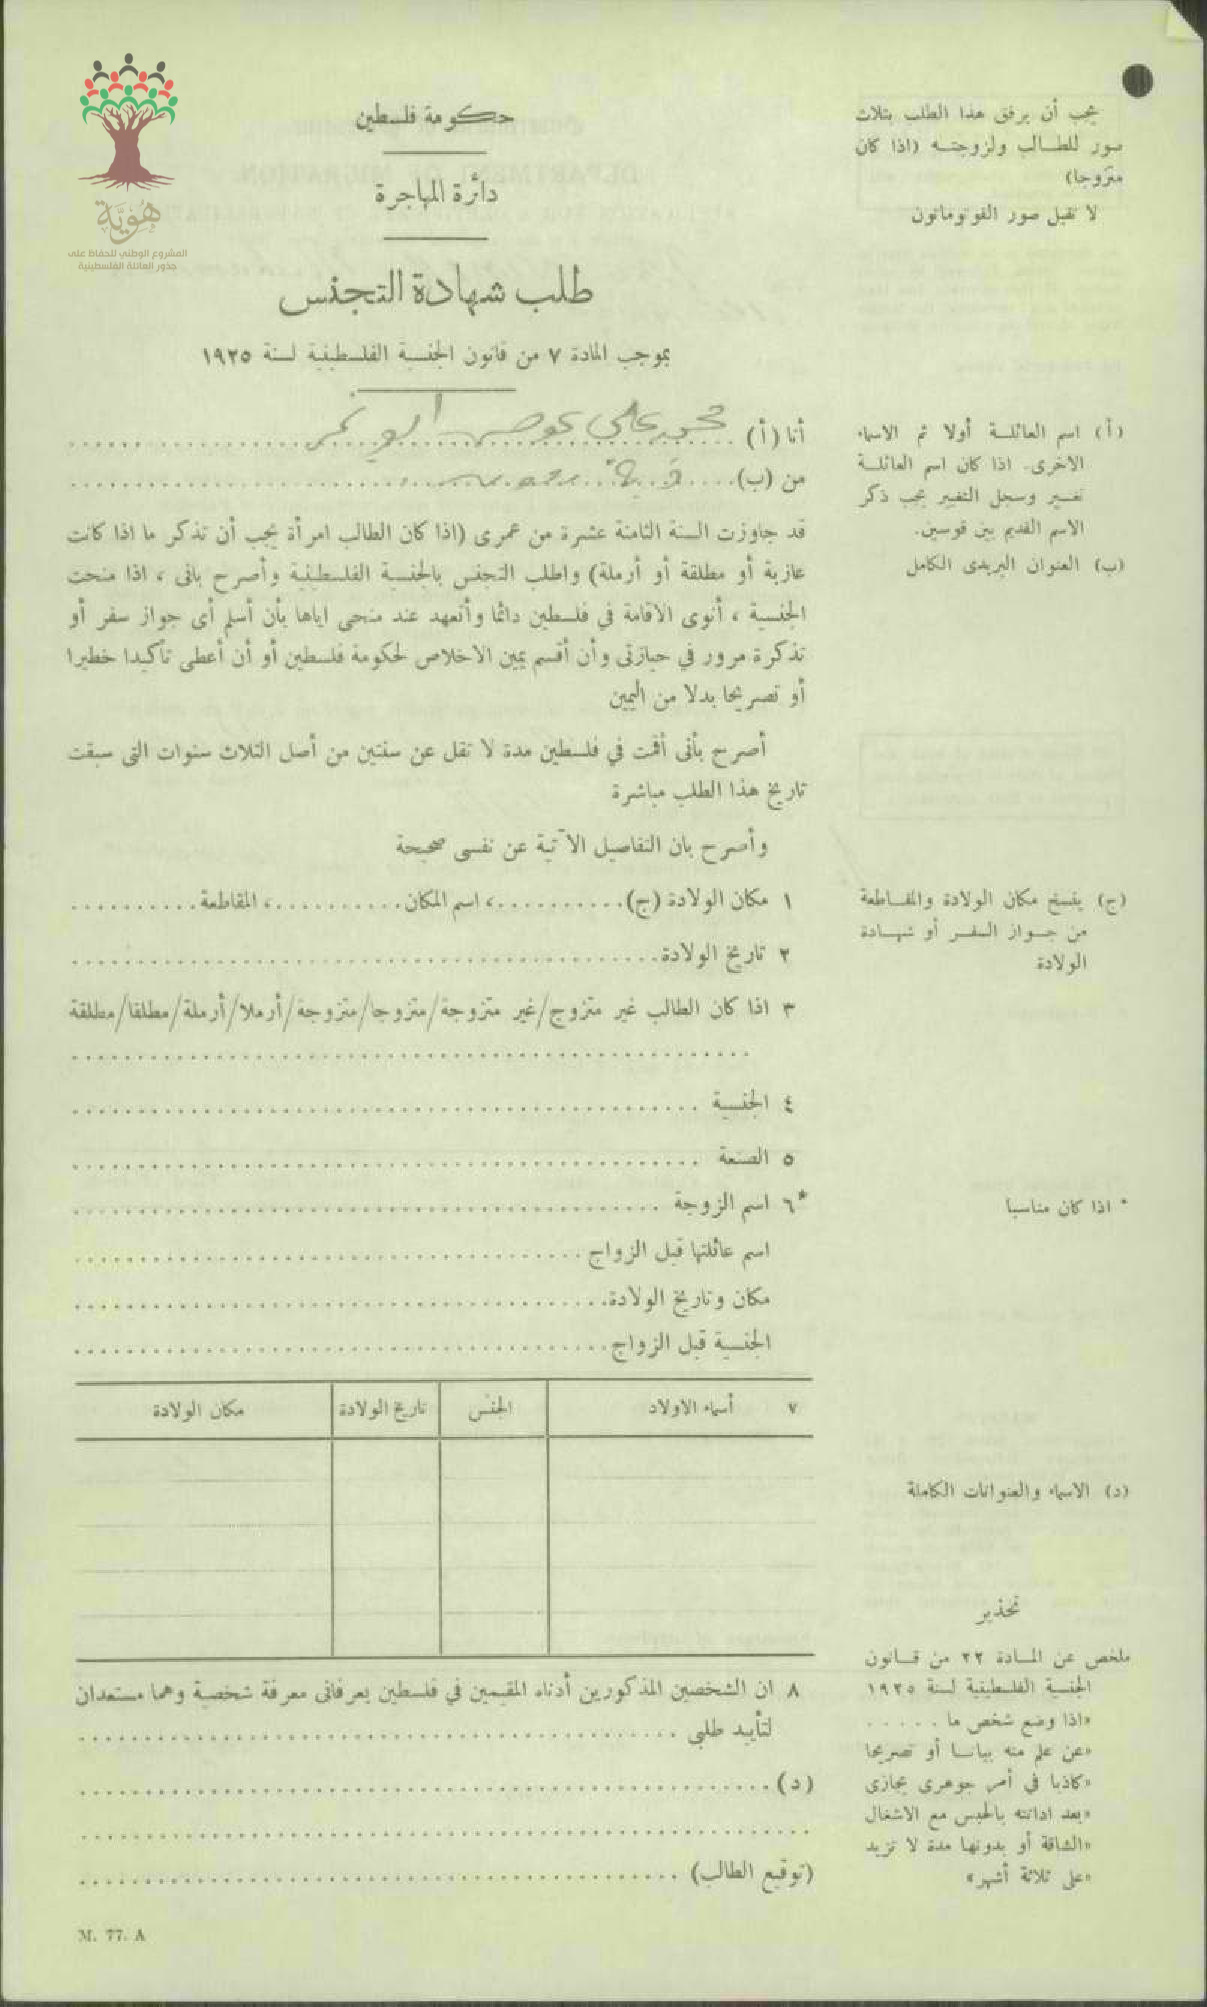 هُوِيَّة
المشروع الوطني للحفاظ على
جذور العائلة الفلسطينية
حكومة فلسطين
دائرة المهاجرة
طلب شهادة التجنس
بموجب المادة ٧ من قانون الجنسية الفلسطينية لسنة ١٩٢٥
يجب أن يرفق هذا الطلب بثلاث
صور للطالب ولزوجته (اذا كان
متزوجا)
لا تقبل صور الفوتوماتون
أنا (أ) محمد علي عوض ابو نمر
من (ب)
(أ) اسم العائلة أولا ثم الاسماء
الاخرى. اذا كان اسم العائلة
تغير وسجل التغيير يجب ذكر
الاسم القديم بين قوسين.
(ب) العنوان البريدى الكامل
قد جاوزت السنة الثامنة عشرة من عمرى (اذا كان الطالب امرأة يجب أن تذكر ما اذا كانت
عازبة أو مطلقة أو أرملة) واطلب التجنس بالجنسية الفلسطينية وأصرح بانى ، اذا منحت
الجنسية ، أنوى الاقامة في فلسطين دائما وأتعهد عند منحى اياها بأن أسلم أى جواز سفر أو
تذكرة مرور في حيازتى وأن أقسم يمين الاخلاص لحكومة فلسطين أو أن أعطى تأكيدا خطيرا
أو تصريحا بدلا من اليمين
أصرح بأنى أقمت في فلسطين مدة لا تقل عن سنتين من أصل الثلاث سنوات التى سبقت
تاريخ هذا الطلب مباشرة
وأصرح بان التفاصيل الآتية عن نفسى صحيحة
١ مكان الولادة (ج)..........، اسم المكان..........، المقاطعة..........
(ج) ينسخ مكان الولادة والمقاطعة
من جواز السفر أو شهادة
الولادة
٢ تاريخ الولادة
٣ اذا كان الطالب غير متزوج/غير متزوجة/متزوجا/متزوجة/أرملا/أرملة/مطلقا/مطلقة
٤ الجنسية
٥ الصنعة
*٦ اسم الزوجة
* اذا كان مناسبا
اسم عائلتها قبل الزواج
مكان وتاريخ الولادة
الجنسية قبل الزواج
٧ أسماء الاولاد الجنس تاريخ الولادة مكان الولادة
(د) الاسماء والعنوانات الكاملة
٨ ان الشخصين المذكورين أدناه المقيمين في فلسطين يعرفانى معرفة شخصية وهما مستعدان
لتأييد طلبى
(د)
(توقيع الطالب)
تحذير
ملخص عن المادة ٢٢ من قانون
الجنسية الفلسطينية لسنة ١٩٢٥
«اذا وضع شخص ما .....
«عن علم منه بيانا أو تصريحا
«كاذبا في أمر جوهرى يجازى
«بعد ادانته بالحبس مع الاشغال
«الشاقة أو بدونها مدة لا تزيد
«على ثلاثة أشهر»
M. 77. A